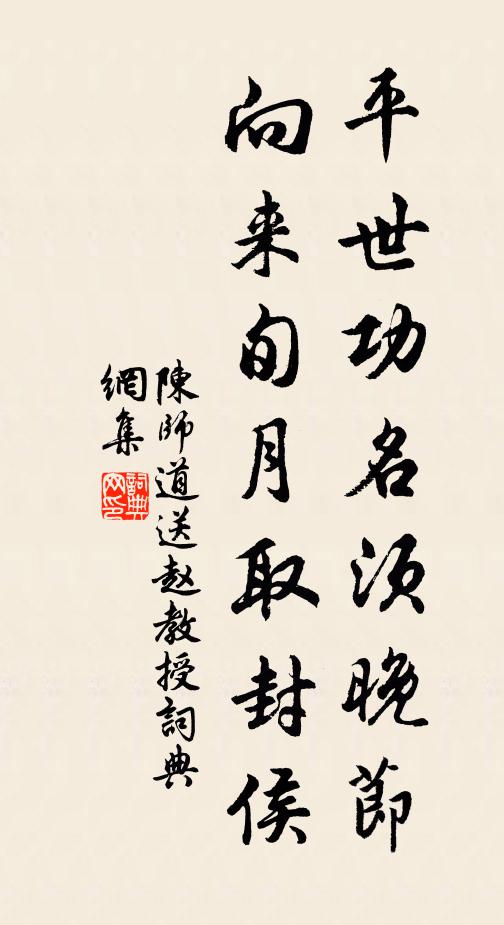 平世功名須晚節
向来旬月取封侯
陳師道送赵教授詞典
網集
詞典
网印